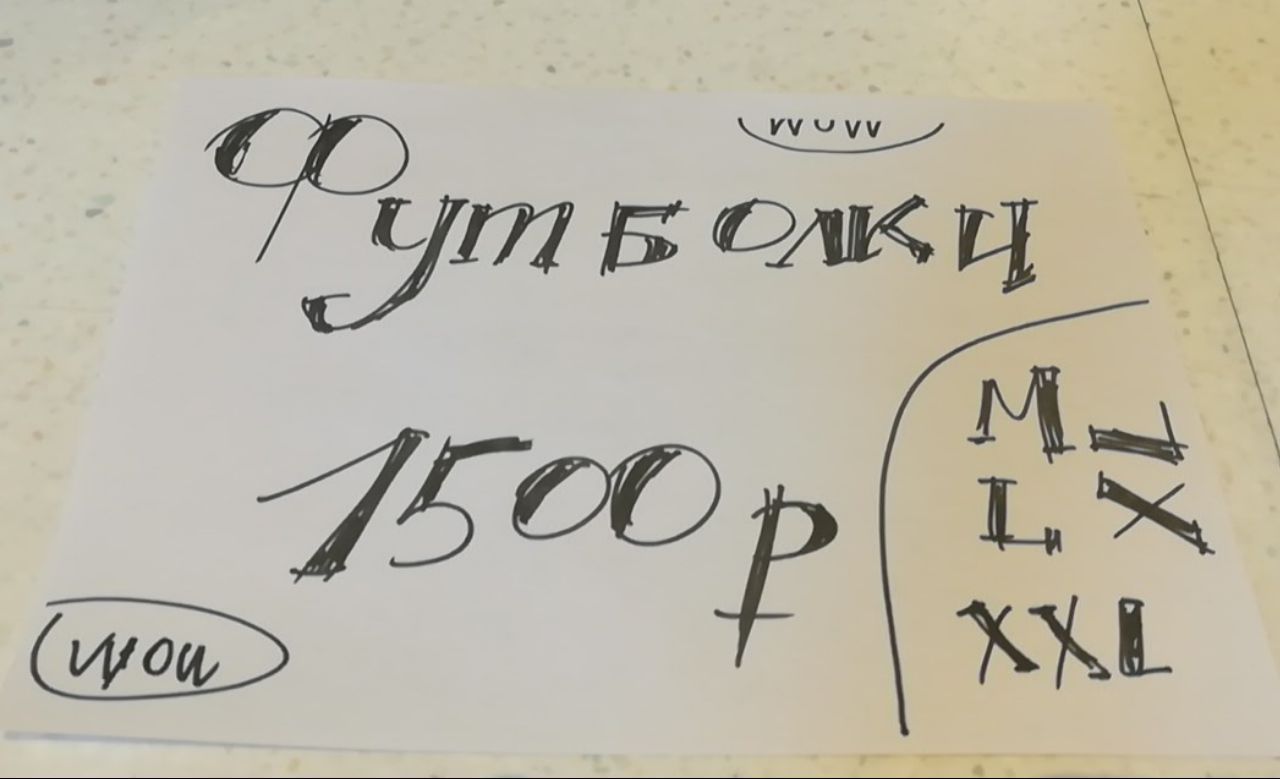 WOW
Футболки
1500 ₽
M
L
XL
XXL
WOW